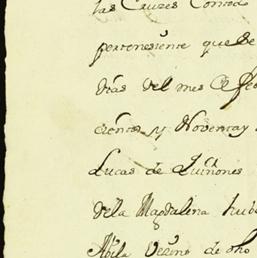 las Cruzes Con todo
pertenesiente que Se
dias del mes de fe
cientos y Noventa y
Lucas de Quiñones
dela Magdalena hubo
Abila Vezino de dho